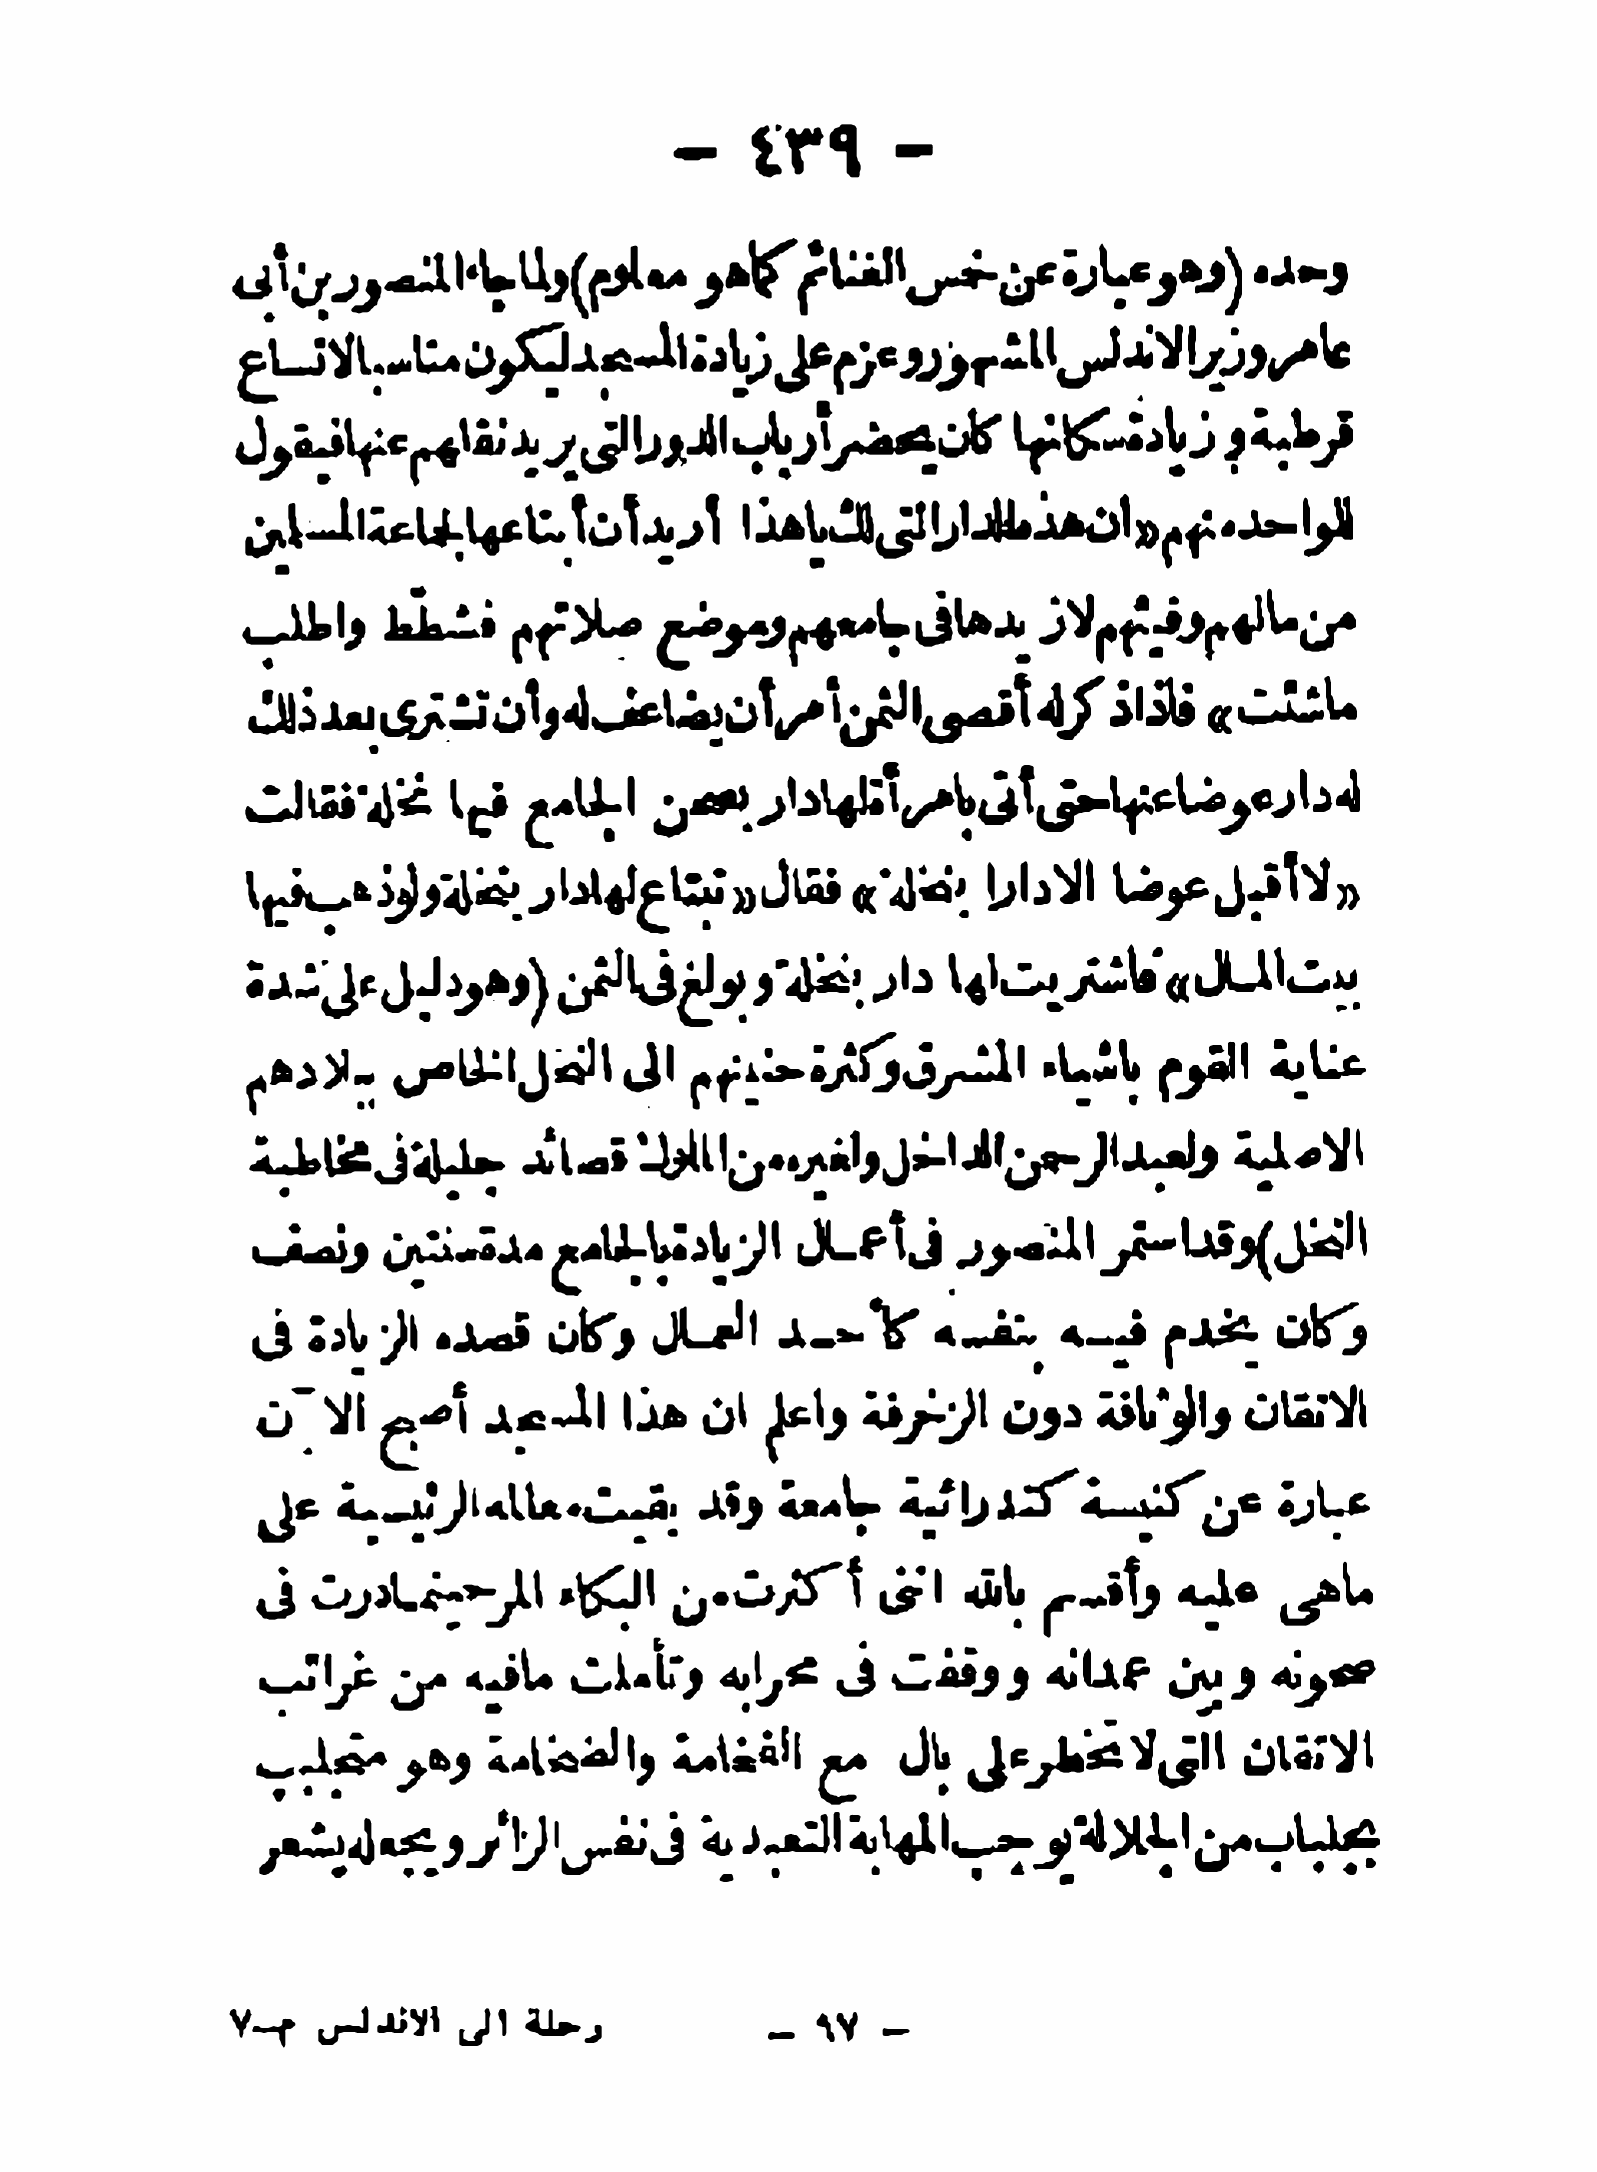 — ٤٣٩ —
وحده (وهو عبارة عن خمس الغنائم كما هو معلوم) ولما جاء المنصور بن أبى
عامر وزير الاندلس المشهور وعزم على زيادة المسجد ليكون مناسبا لاتساع
قرطبة و زيادة سكانها كان يحضر أرباب الدور التى يريد نقلهم عنها فيقول
للواحد منهم «ان هذه الدار التى لك يا هذا أريد أن أبتاعها لجماعة المسلمين
من مالهم وفيئهم لازيدها فى جامعهم وموضع صلاتهم فشطّط واطلب
ماشئت» فاذا ذكر له أقصى الثمن أمر أن يضاعف له وأن تشترى بعد ذلك
له دار عوضا عنها حتى أتى بامرأة لها دار بصحن الجامع فيها نخلة فقالت
«لا أقبل عوضا الا دارا بنخلة» فقال «تبتاع لها دار بنخلة ولو ذهب فيها
بيت المال» فاشتريت لها دار بنخلة و بولغ فى الثمن (وهو دليل على شدة
عناية القوم باشياء المشرق وكثرة حنينهم الى النخل الخاص ببلادهم
الاصلية ولعبد الرحمن الداخل ولغيره من الملوك قصائد جليلة فى مخاطبة
النخل) وقد استمر المنصور فى أعمال الزيادة بالجامع مدة سنتين ونصف
وكان يخدم فيه بنفسه كأحد العمال وكان قصده الزيادة فى
الاتقان والوثاقة دون الزخرفة واعلم ان هذا المسجد أصبح الآن
عبارة عن كنيسة كتدرائية جامعة وقد بقيت معالمه الرئيسية على
ماهى عليه وأقسم بالله اننى أكثرت من البكاء المر حينما درت فى
صحونه و بين عمدانه و وقفت فى محرابه وتأملت مافيه من غرائب
الاتقان التى لا تخطر على بال مع الفخامة والضخامة وهو متجلبب
بجلباب من الجلالة يوجب المهابة التعبدية فى نفس الزائر و يجعله يشعر
— ٩٧ — رحلة الى الاندلس م—٧